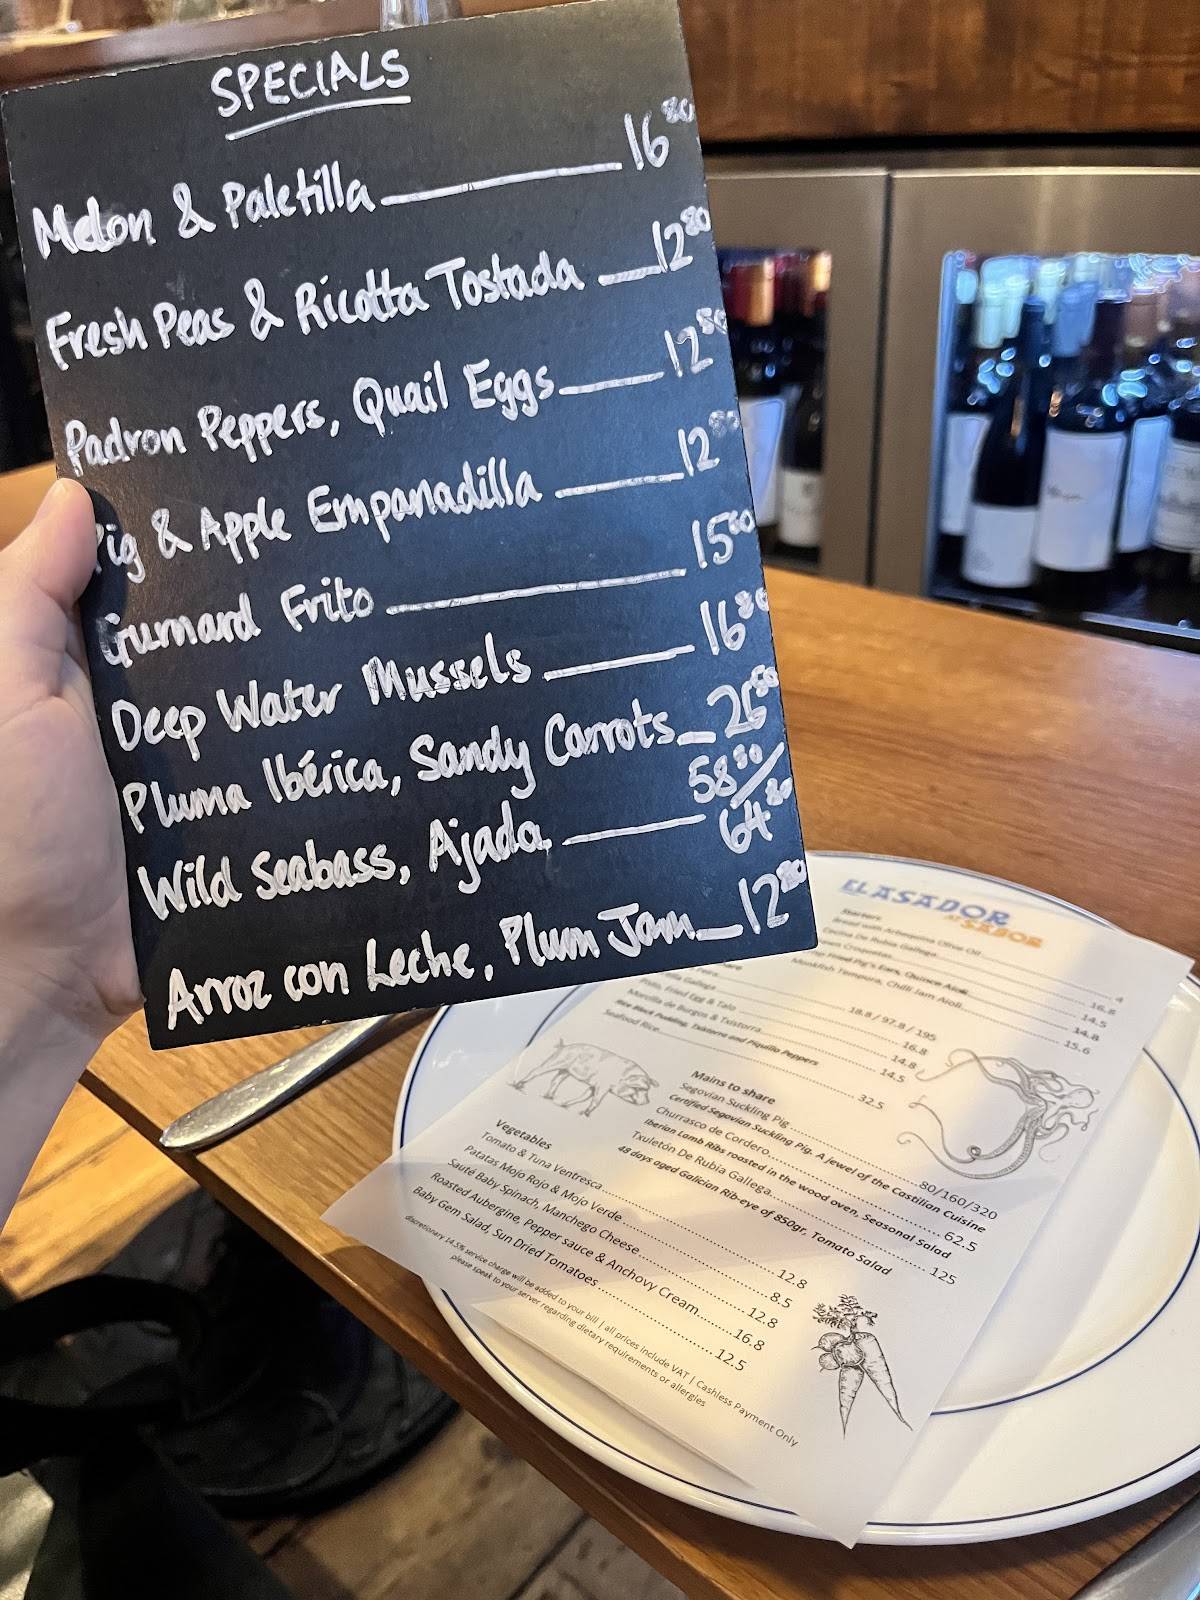 SPECIALS
Melon & Paletilla 16.80
Fresh Peas & Ricotta Tostada 12.80
Padron Peppers, Quail Eggs 12.50
Pig & Apple Empanadilla 12
Gurnard Frito 15
Deep Water Mussels 16.80
Pluma Ibérica, Sandy Carrots 50
Wild Seabass, Ajada 58.80/
64.80
Arroz con Leche, Plum Jam 12.80
EL ASADOR
AT SABOR
Starters
Bread with Arbequina Olive Oil 4
Cecina De Rubia Gallega 16.8
Croquetas 14.5
Fried Pig's Ears, Quince Aioli 14.8
Monkfish Tempura, Chilli Jam Aioli 15.6
Gallega 18.8 / 97.8 / 195
Fried Egg & Talo 16.8
Morcilla de Burgos & Txistorra 14.8
Rice Black Pudding, Txistorra and Piquillo Peppers 14.5
Seafood Rice 32.5
Mains to share
Segovian Suckling Pig 80/160/320
Certified Segovian Suckling Pig. A jewel of the Castilian Cuisine
Churrasco de Cordero 62.5
Iberian Lamb Ribs roasted in the wood oven, Seasonal Salad
Txuletón De Rubia Gallega 125
48 days aged Galician Rib-eye of 850gr, Tomato Salad
Vegetables
Tomato & Tuna Ventresca 12.8
Patatas Mojo Rojo & Mojo Verde 8.5
Sauté Baby Spinach, Manchego Cheese 12.8
Roasted Aubergine, Pepper sauce & Anchovy Cream 16.8
Baby Gem Salad, Sun Dried Tomatoes 12.5
discretionary 14.5% service charge will be added to your bill | all prices include VAT | Cashless Payment Only
please speak to your server regarding dietary requirements or allergies